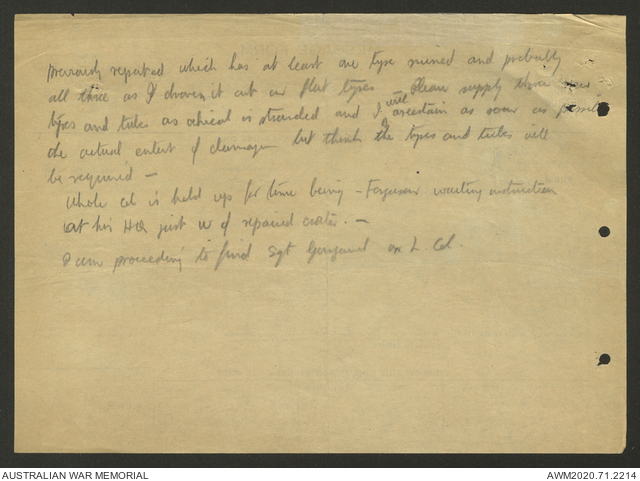 previously repaired which has at least one tyre ruined and probably
all three as I drove it out on flat tyres. Please supply three
tyres and tubes as vehicle is stranded and I will ascertain as soon as possible
the actual extent of damage but think the tyres and tubes will
be required —
Whole col is held up for time being — Ferguson waiting instruction
at his HQ just W of repaired crater. —
I am proceeding to find Sgt on L. Col.
AUSTRALIAN WAR MEMORIAL
AWM2020.71.2214